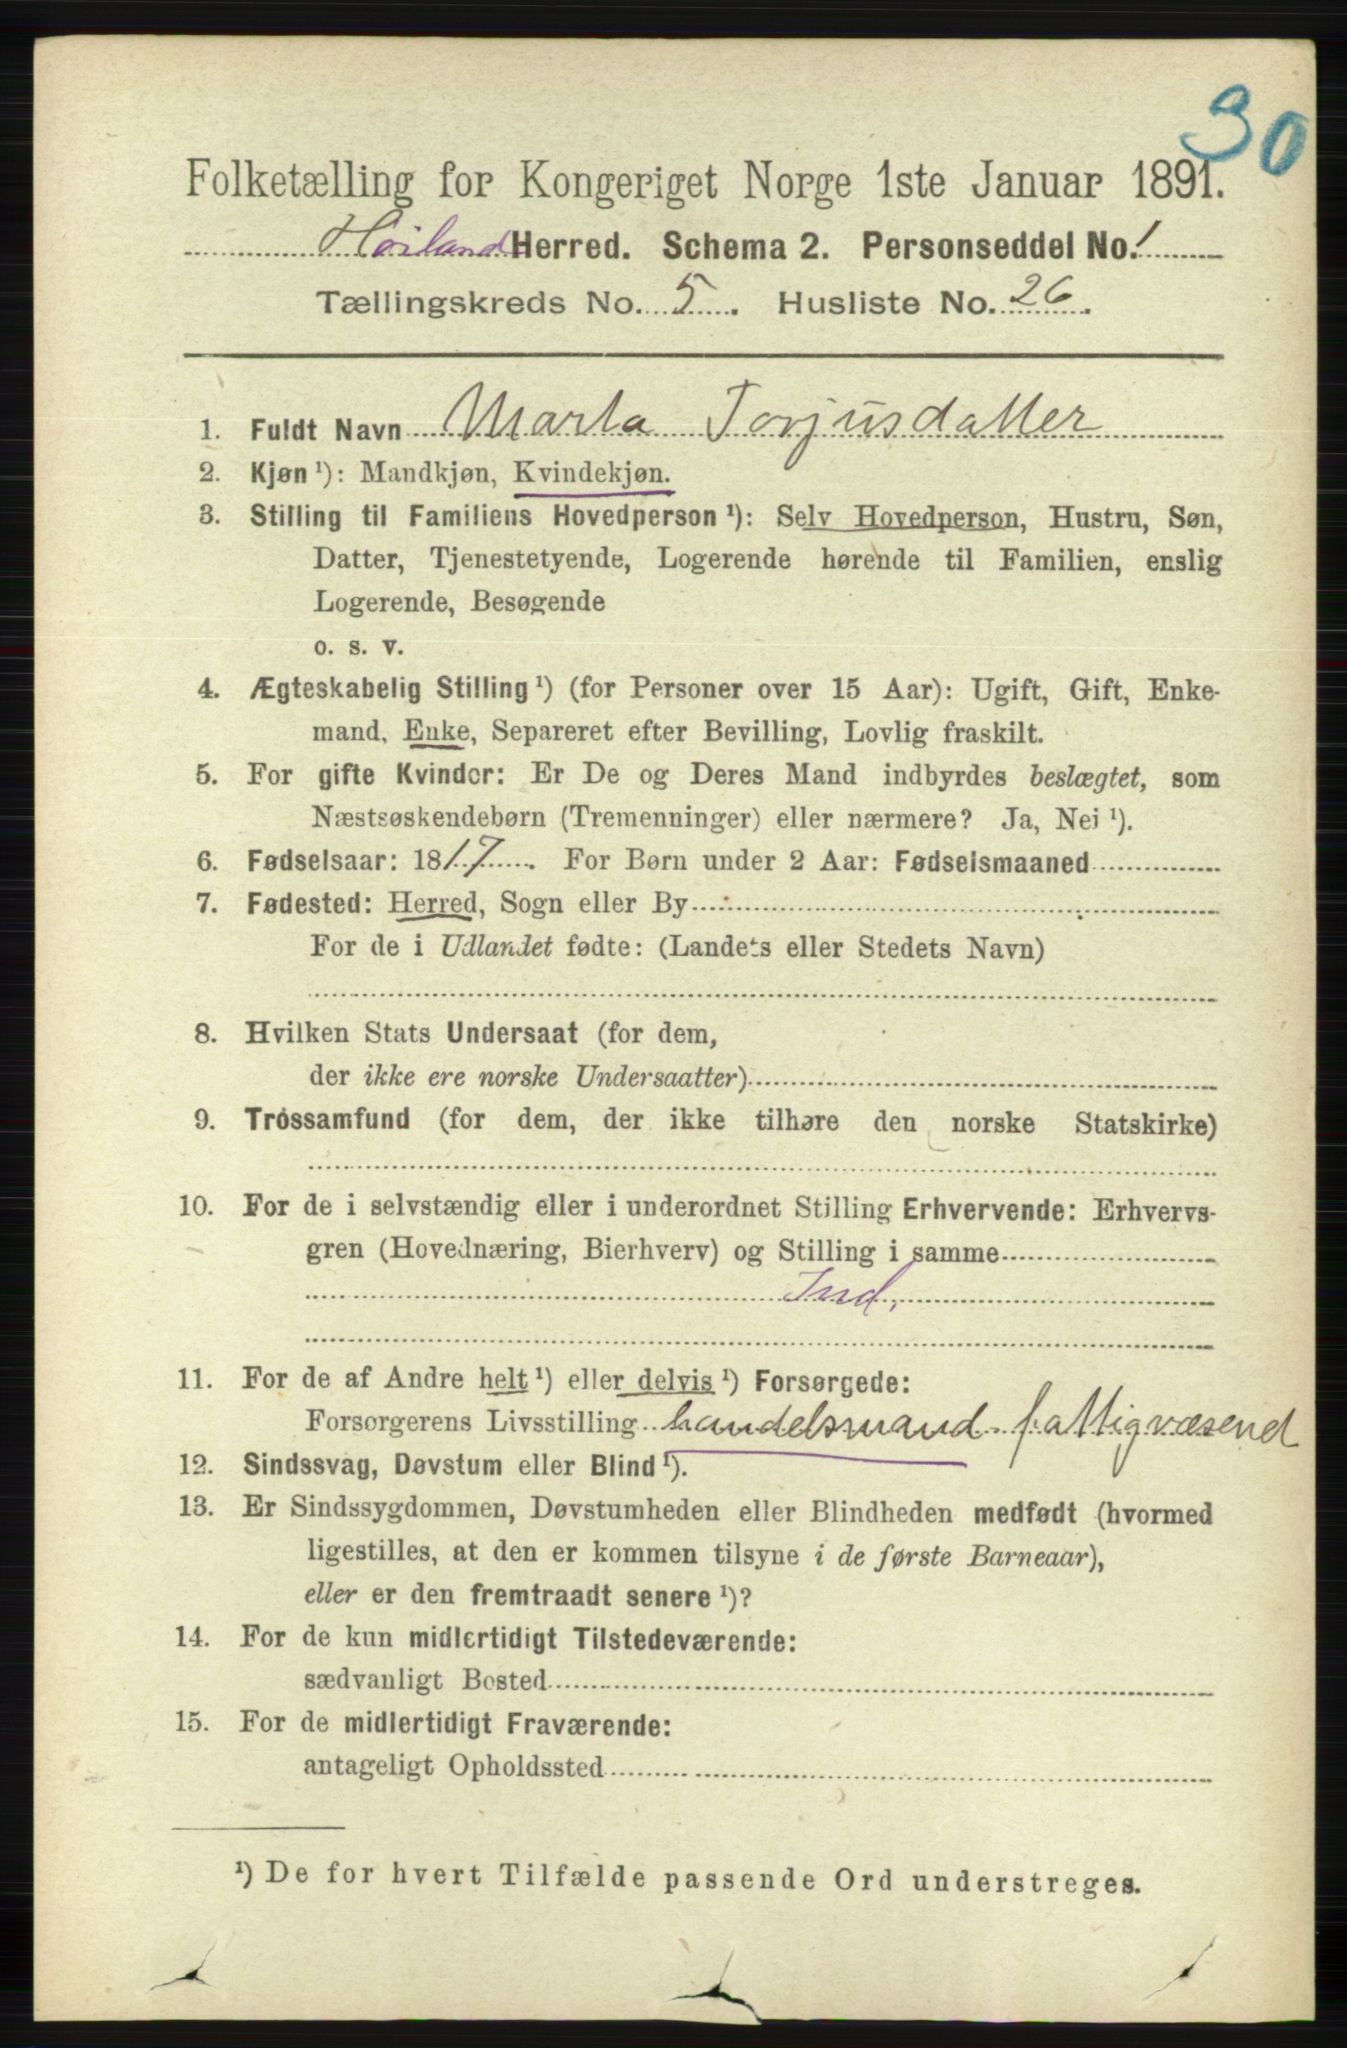 30
Folketælling for Kongeriget Norge 1ste Januar 1891.
Høiland Herred. Schema 2. Personseddel No. 1
Tællingskreds No. 5. Husliste No. 26.
1. Fuldt Navn Marta Torjusdatter
2. Kjøn ¹): Mandkjøn, Kvindekjøn.
3. Stilling til Familiens Hovedperson ¹): Selv Hovedperson, Hustru, Søn,
Datter, Tjenestetyende, Logerende hørende til Familien, enslig
Logerende, Besøgende
o. s. v.
4. Ægteskabelig Stilling ¹) (for Personer over 15 Aar): Ugift, Gift, Enke-
mand, Enke, Separeret efter Bevilling, Lovlig fraskilt.
5. For gifte Kvinder: Er De og Deres Mand indbyrdes beslægtet, som
Næstsøskendebørn (Tremenninger) eller nærmere? Ja, Nei ¹).
6. Fødselsaar: 1817. For Børn under 2 Aar: Fødselsmaaned
7. Fødested: Herred, Sogn eller By
For de i Udlandet fødte: (Landets eller Stedets Navn)
8. Hvilken Stats Undersaat (for dem,
der ikke ere norske Undersaatter)
9. Trossamfund (for dem, der ikke tilhøre den norske Statskirke)
10. For de i selvstændig eller i underordnet Stilling Erhvervende: Erhvervs-
gren (Hovednæring, Bierhverv) og Stilling i samme
Ind,
11. For de af Andre helt ¹) eller delvis ¹) Forsørgede:
Forsørgerens Livsstilling handelsmand. fattigvæsend
12. Sindssvag, Døvstum eller Blind ¹).
13. Er Sindssygdommen, Døvstumheden eller Blindheden medfødt (hvormed
ligestilles, at den er kommen tilsyne i de første Barneaar),
eller er den fremtraadt senere ¹)?
14. For de kun midlertidigt Tilstedeværende:
sædvanligt Bosted
15. For de midlertidigt Fraværende:
antageligt Opholdssted
¹) De for hvert Tilfælde passende Ord understreges.